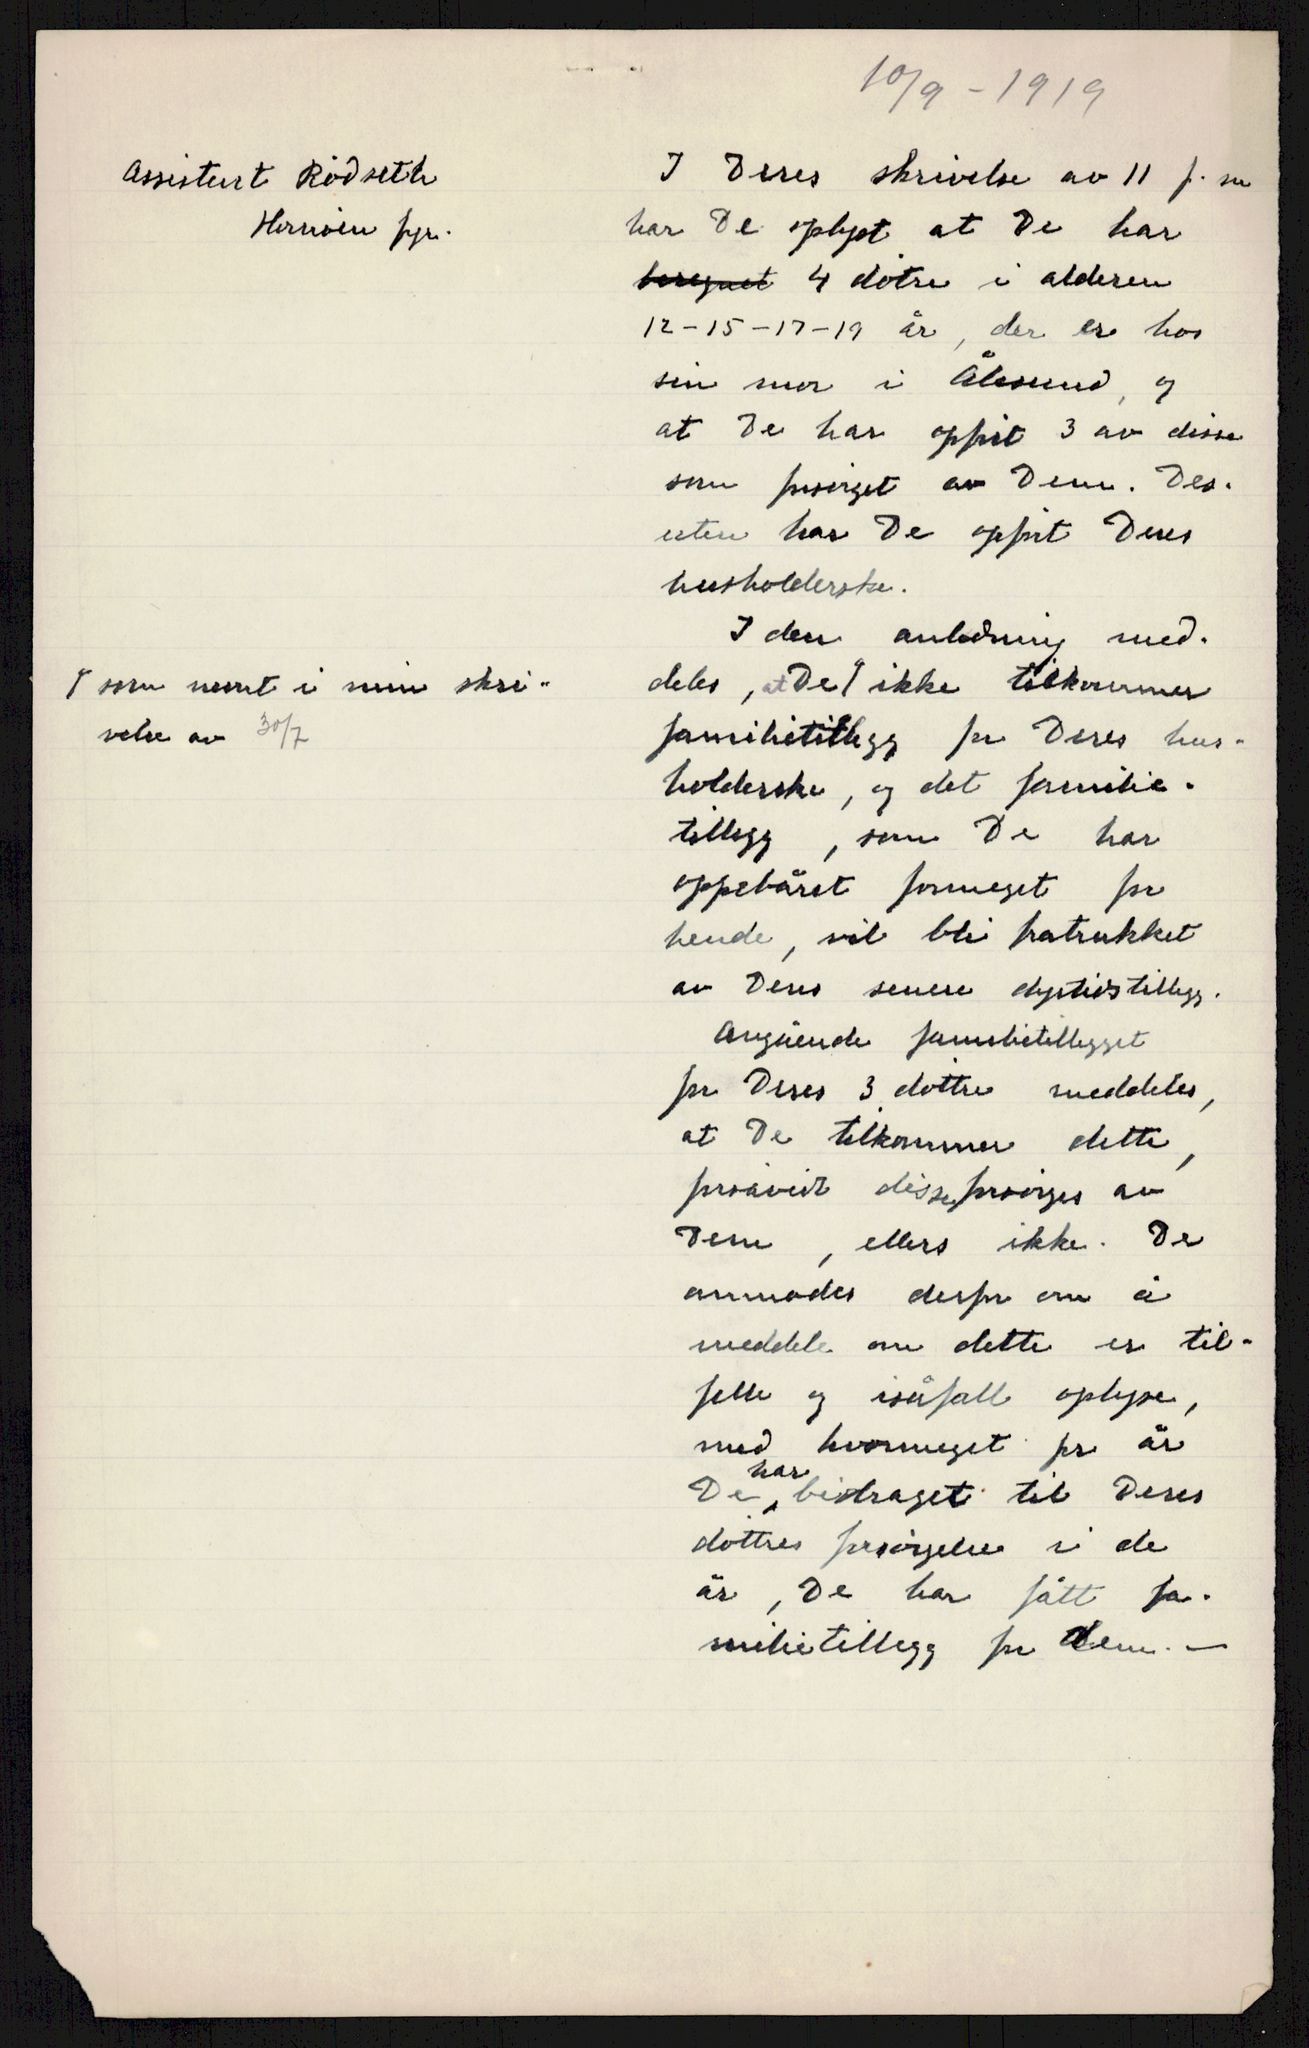 10/9 - 1919
Assistent Rödseth
Hornöen fyr.
I Deres skrivelse av 11 f. m
har De oplyst at De har
beregnet 4 döttre i alderen
12-15-17-19 år, der er hos
sin mor i Ålesund, og
at De har opført 3 av disse
som forsörget av Dem. Des-
uten har De opført Deres
husholderske.
I den anledning med-
deles, at De ikke tilkommer
⌈ som nevnt i min skri-
velse av 30/7
familietillegg for Deres hus-
holderske, og det familie-
tillegg, som De har
oppebåret formeget for
hende, vil bli fratrukket
av Deres senere dyrtidstillegg.
Angående familietillegget
for Deres 3 döttre meddeles,
at De tilkommer dette,
forsåvidt disse forsörges av
Dem, ellers ikke. De
anmodes derfor om å
meddele om dette er til-
felle og isåfall oplyse,
med hvormeget pr år
De har bidraget til Deres
döttres forsörgelse i de
år, De har fått fa-
milietillegg for dem. -